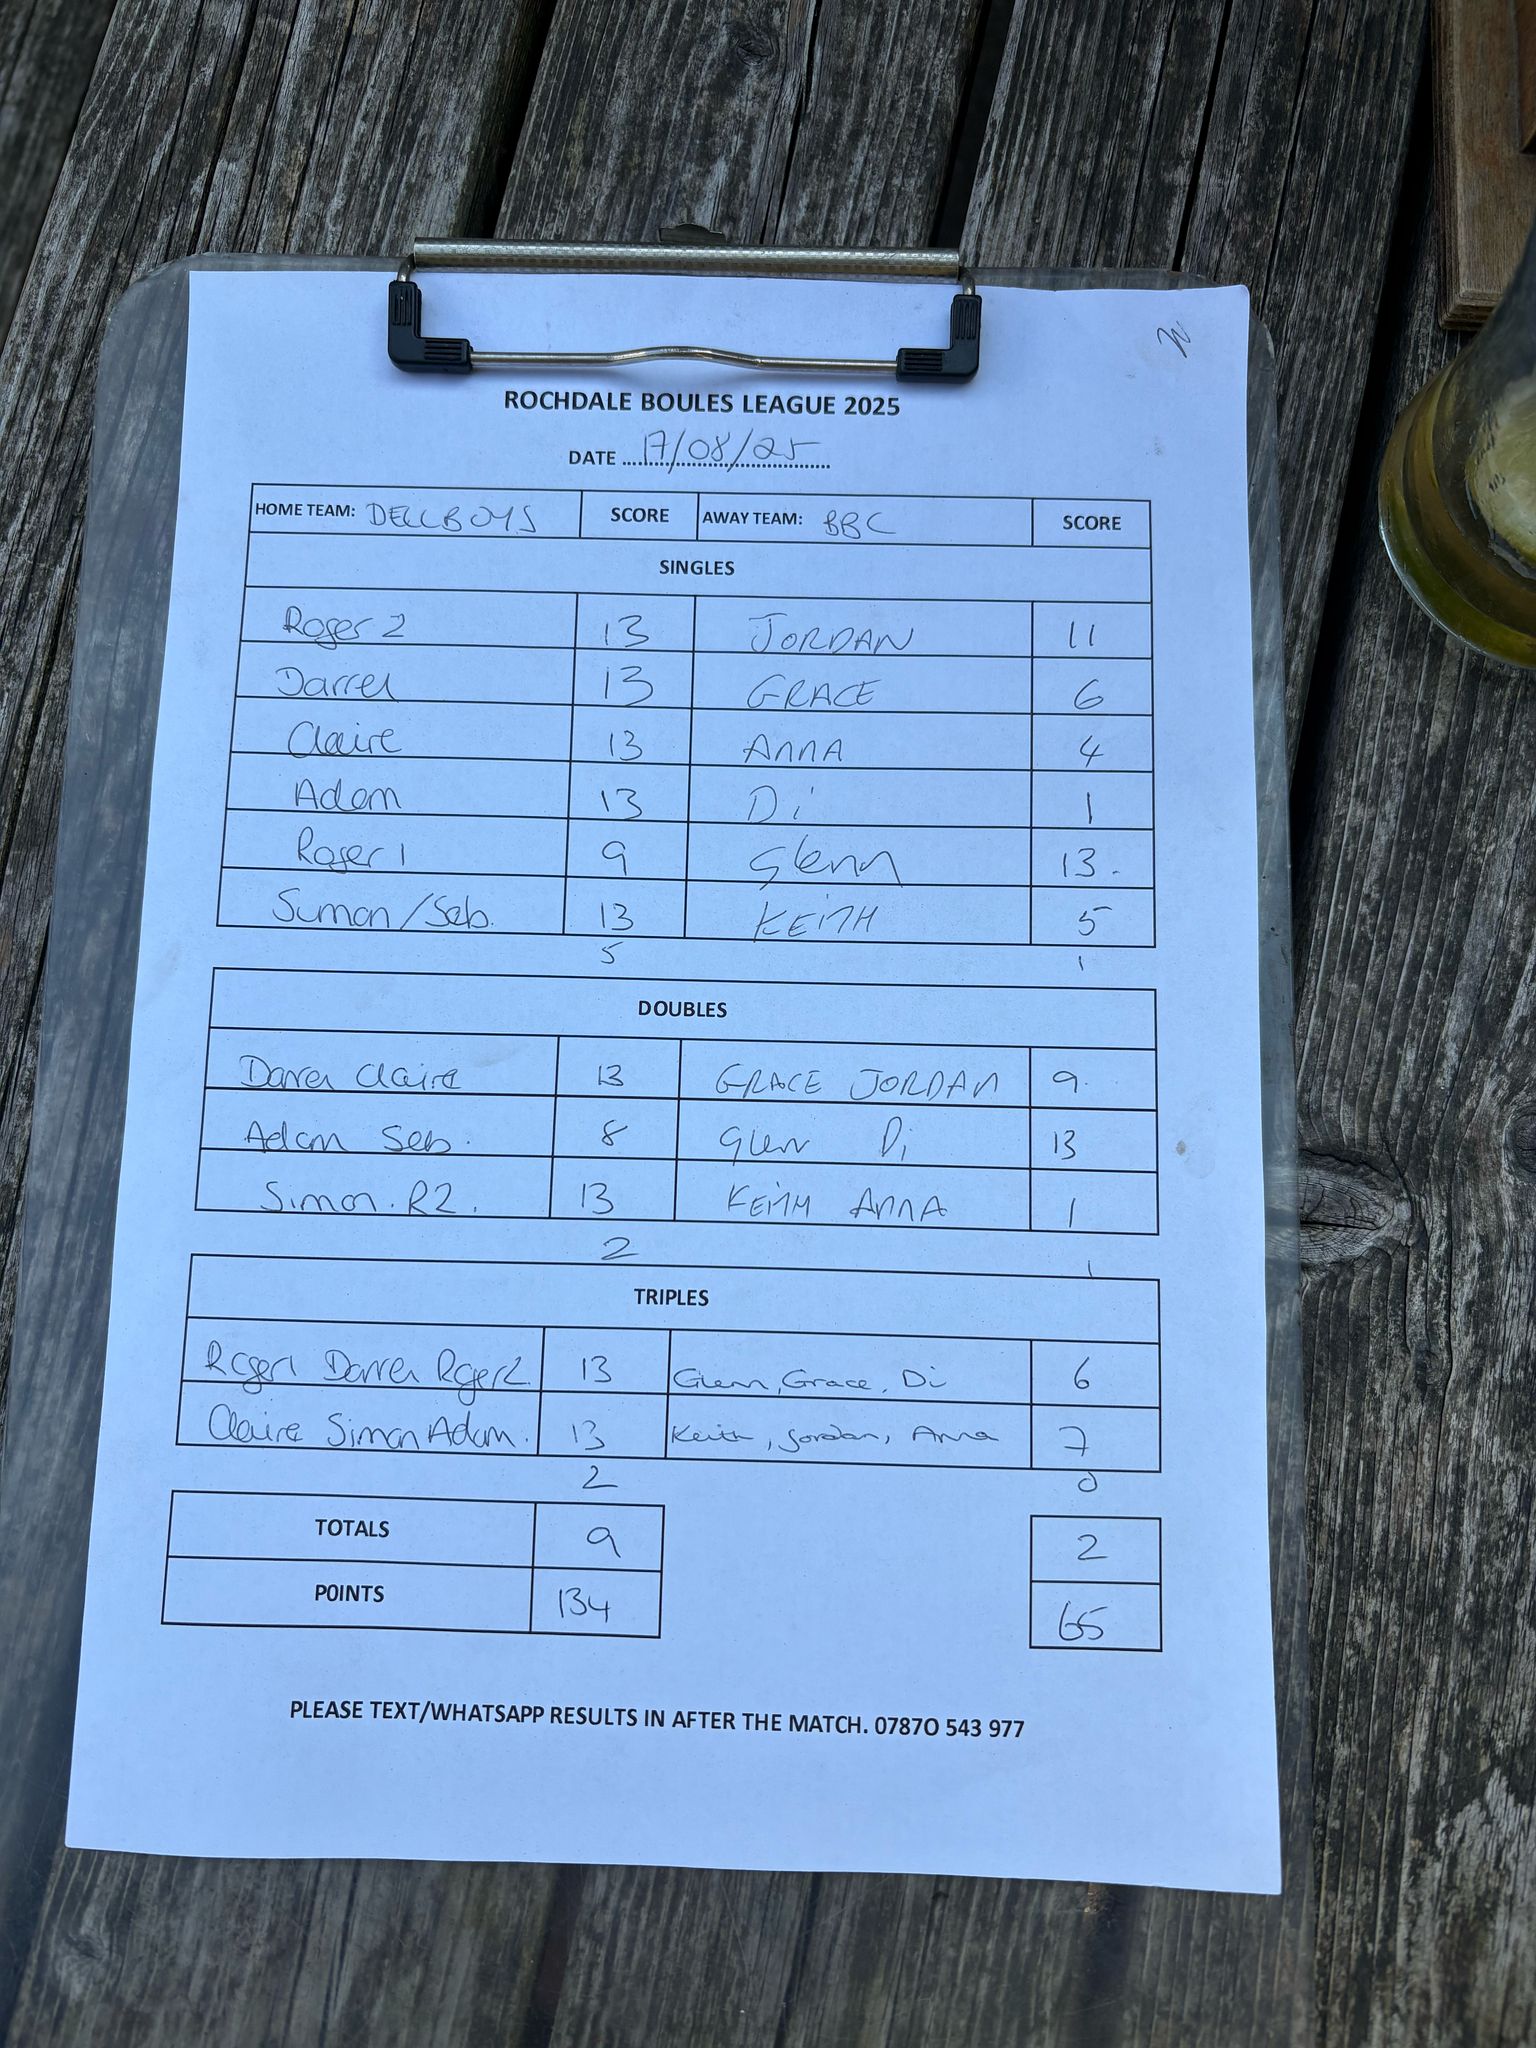 ROCHDALE BOULES LEAGUE 2025
DATE 17/08/25
HOME TEAM: DELLBOYS SCORE AWAY TEAM: BBC SCORE
SINGLES
Roger 2 13 JORDAN 11
Darren 13 GRACE 6
Claire 13 ANNA 4
Adam 13 Di 1
Roger 1 9 Glenn 13
Simon/Seb. 13 KEITH 5
5 1
DOUBLES
Darren Claire 13 GRACE JORDAN 9
Adam Seb. 8 Glenn Di 13
Simon. R2. 13 KEITH ANNA 1
2 1
TRIPLES
Roger1 Darren Roger2 13 Glenn, Grace, Di 6
Claire Simon Adam. 13 Keith, Jordan, Anna 7
2 0
TOTALS 9 2
POINTS 134 65
PLEASE TEXT/WHATSAPP RESULTS IN AFTER THE MATCH. 0787O 543 977